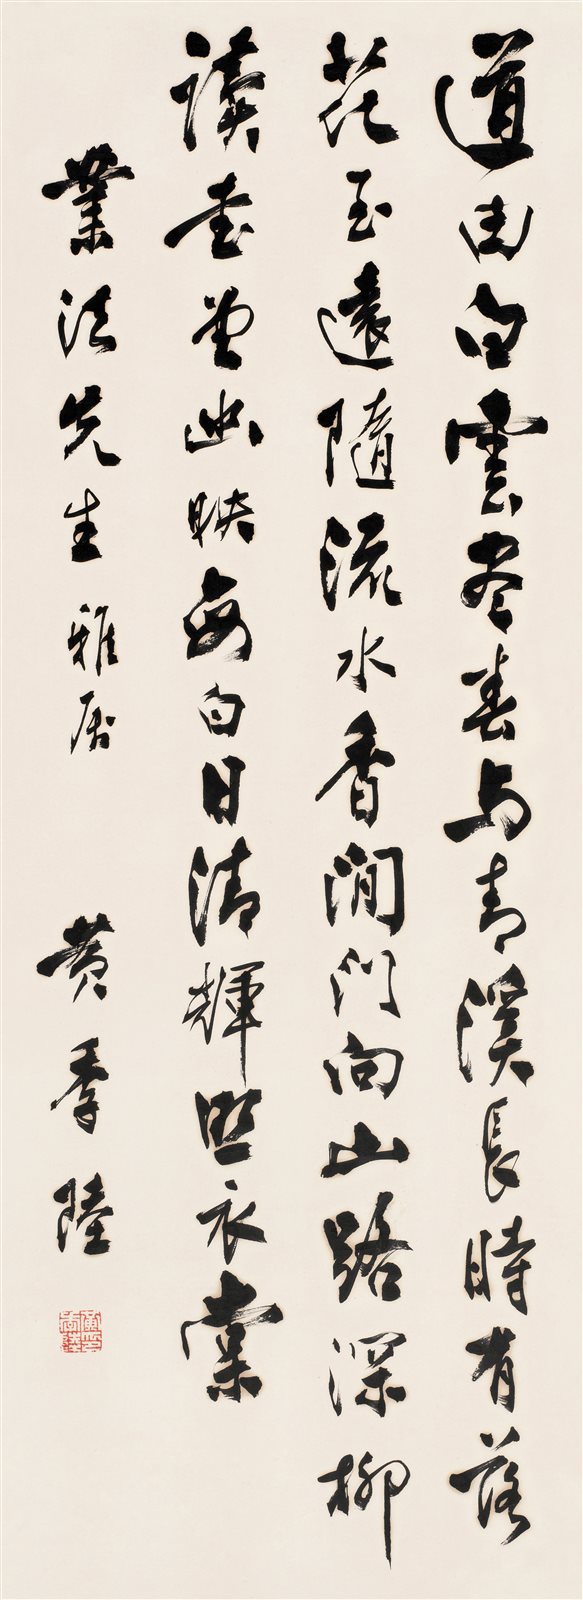 道由白雲盡春与青溪長時有落
花至遠隨流水香澗門向山路深柳
讀書堂幽映每白日清輝照衣裳
業法先生雅屬　黃季陸